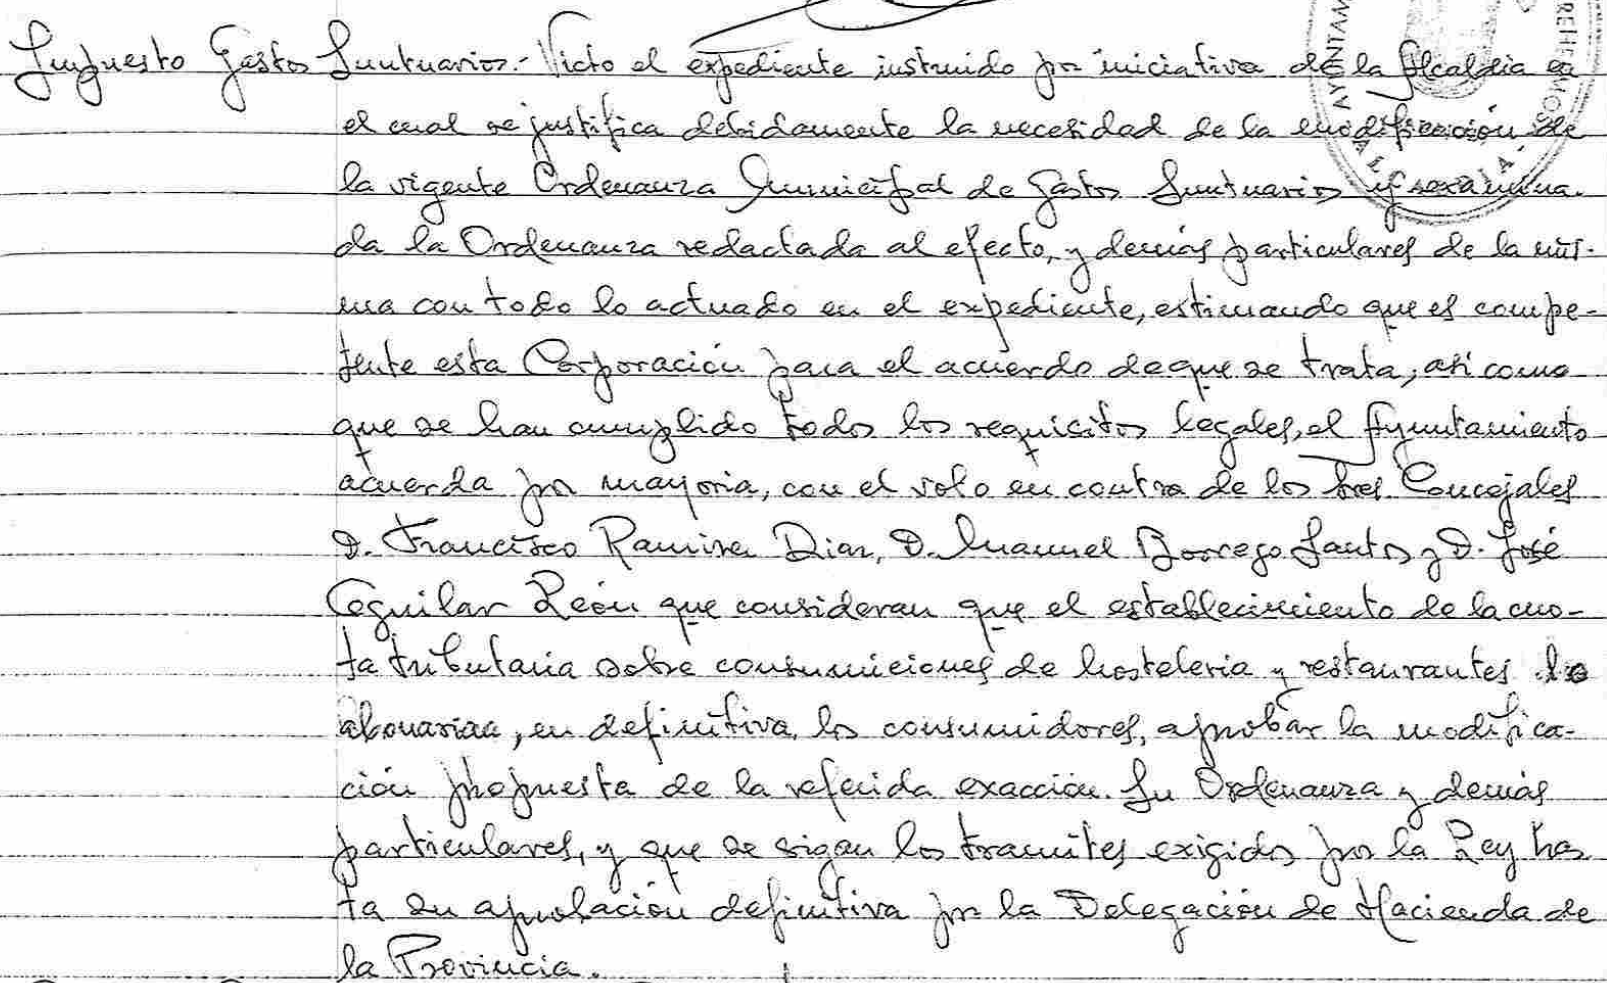 AYUNTAM
ALCALDIA
Impuesto Gastos Suntuarios.- Visto el expediente instruido por iniciativa de la Alcaldia en
el cual se justifica debidamente la necesidad de la modificación de
la vigente Ordenanza Municipal de Gastos Suntuarios y examina-
da la Ordenanza redactada al efecto, y demás particulares de la mis-
ma con todo lo actuado en el expediente, estimando que es compe-
tente esta Corporación para el acuerdo de que se trata, asi como
que se han cumplido todos los requisitos legales, el Ayuntamiento
acuerda por mayoria, con el voto en contra de los tres Concejales
D. Francisco Ramirez Diaz, D. Manuel Borrego Santos y D. José
Aguilar León que consideran que el establecimiento de la cuo-
ta tributaria sobre consumiciones de hosteleria y restaurantes lo
abonarian, en definitiva, los consumidores, aprobar la modifica-
ción propuesta de la referida exacción. Su Ordenanza y demás
particulares, y que se sigan los tramites exigidos por la Ley has
ta su aprobación definitiva por la Delegación de Hacienda de
la Provincia.